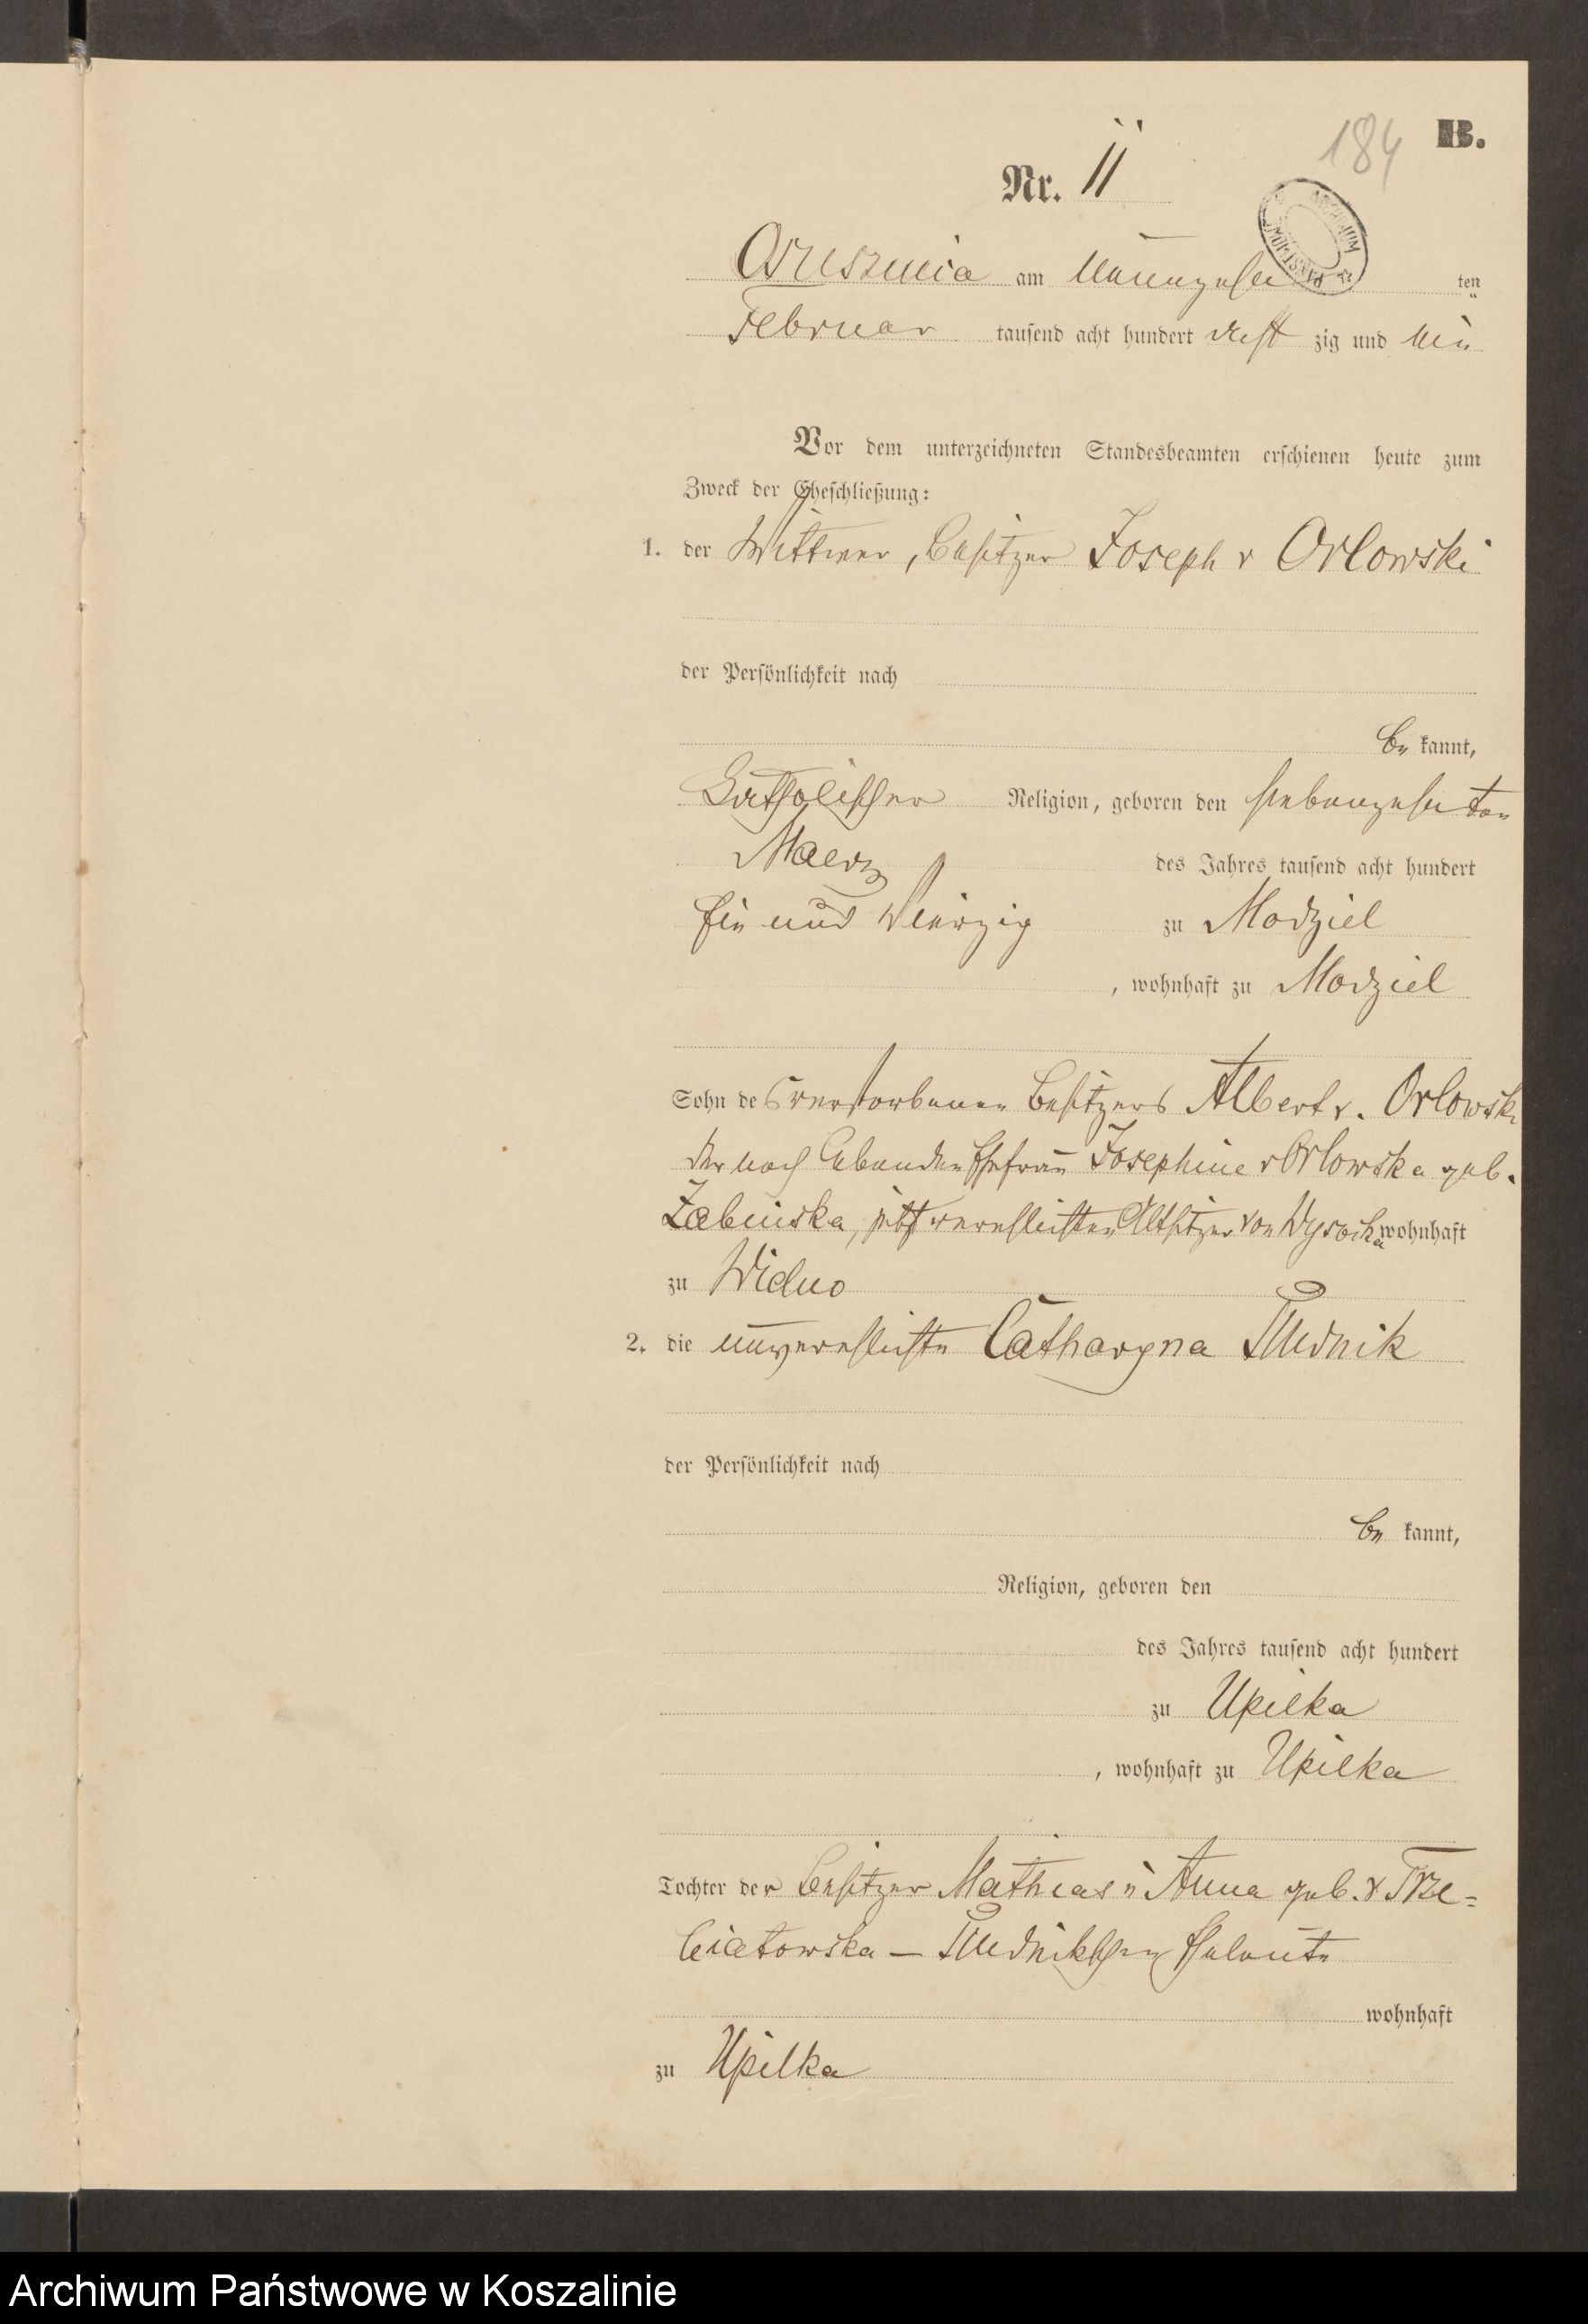 B.
184
Nr. 11
am neunzehn ten
Februar tausend acht hundert acht zig und neun
Vor dem unterzeichneten Standesbeamten erschienen heute zum
Zweck der Eheschließung:
1. der Wittwer, Besitzer Joseph v Orlowski
der Persönlichkeit nach
be kannt,
katholischer Religion, geboren den siebenzehnten
Maerz des Jahres tausend acht hundert
ein und vierzig zu Modziel
, wohnhaft zu Modziel
Sohn des verstorbenen Besitzers Albert v. Orlowski
der noch lebenden Ehefrau Josephine v Orlowska geb.
Zabinska, jetzt verehelichten Altsitzer von Wysocka wohnhaft
zu Widno
2. die unverehelichte Catharyna
der Persönlichkeit nach
be kannt,
Religion, geboren den
des Jahres tausend acht hundert
zu Upilka
, wohnhaft zu Upilka
Tochter der Besitzer Mathias u Anna geb. v Trze=
biatowska — Eheleute
wohnhaft
zu Upilka
Archiwum Państwowe w Koszalinie